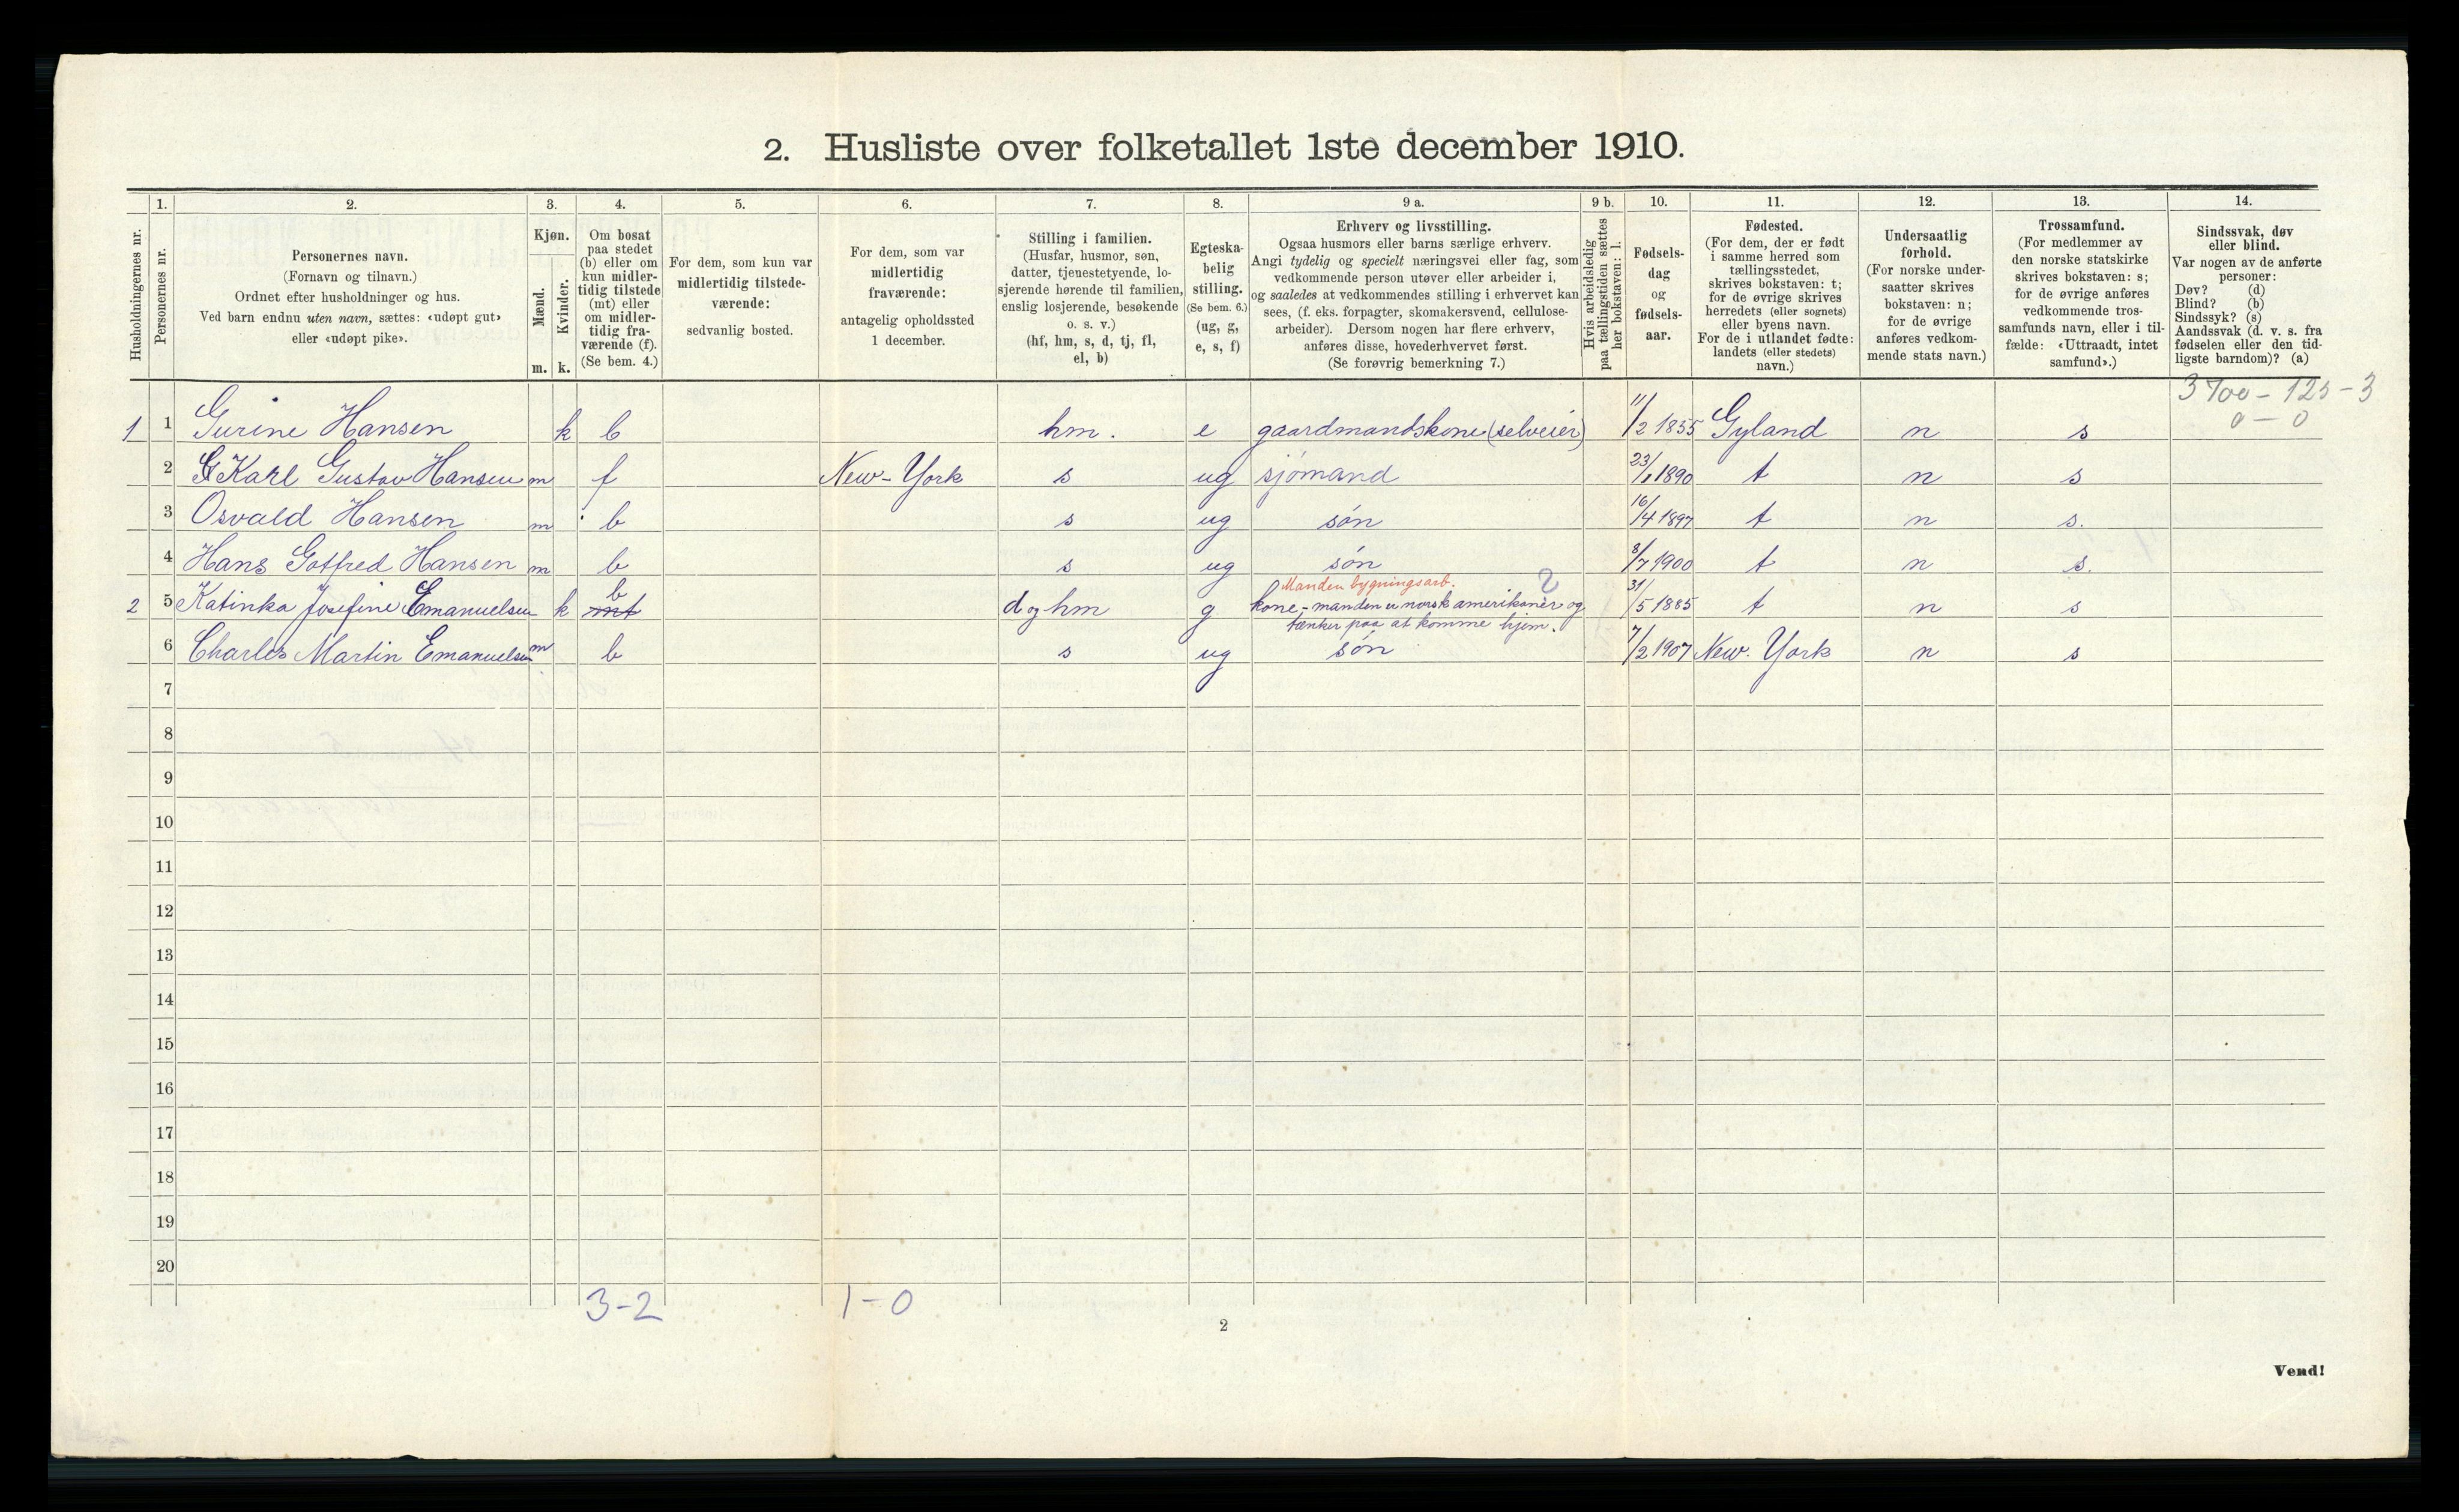 2. Husliste over folketallet 1ste december 1910.
Husholdningernes nr.
1.
Personernes nr.
2.
Personernes navn.
(Fornavn og tilnavn.)
Ordnet efter husholdninger og hus.
Ved barn endnu uten navn, sættes: «udøpt gut»
eller «udøpt pike».
3.
Kjøn.
Mænd.
Kvinder.
m. k.
4.
Om bosat
paa stedet
(b) eller om
kun midler-
tidig tilstede
(mt) eller
om midler-
tidig fra-
værende (f).
(Se bem. 4.)
5.
For dem, som kun var
midlertidig tilstede-
værende:
sedvanlig bosted.
6.
For dem, som var
midlertidig
fraværende:
antagelig opholdssted
1 december.
7.
Stilling i familien.
(Husfar, husmor, søn,
datter, tjenestetyende, lo-
sjerende hørende til familien,
enslig losjerende, besøkende
o. s. v.)
(hf, hm, s, d, tj, fl,
el, b)
8.
Egteska-
belig
stilling.
(Se bem. 6.)
(ug, g,
e, s, f)
9 a.
Erhverv og livsstilling.
Ogsaa husmors eller barns særlige erhverv.
Angi tydelig og specielt næringsvei eller fag, som
vedkommende person utøver eller arbeider i,
og saaledes at vedkommendes stilling i erhvervet kan
sees, (f. eks. forpagter, skomakersvend, cellulose-
arbeider). Dersom nogen har flere erhverv,
anføres disse, hovederhvervet først.
(Se forøvrig bemerkning 7.)
9 b.
Hvis arbeidsledig
paa tællingstiden sættes
her bokstaven: l.
10.
Fødsels-
dag
og
fødsels-
aar.
11.
Fødested.
(For dem, der er født
i samme herred som
tællingsstedet,
skrives bokstaven: t;
for de øvrige skrives
herredets (eller sognets)
eller byens navn.
For de i utlandet fødte:
landets (eller stedets)
navn.)
12.
Undersaatlig
forhold.
(For norske under-
saatter skrives
bokstaven: n;
for de øvrige
anføres vedkom-
mende stats navn.)
13.
Trossamfund.
(For medlemmer av
den norske statskirke
skrives bokstaven: s;
for de øvrige anføres
vedkommende tros-
samfunds navn, eller i til-
fælde: «Uttraadt, intet
samfund».)
14.
Sindssvak, døv
eller blind.
Var nogen av de anførte
personer:
Døv? (d)
Blind? (b)
Sindssyk? (s)
Aandssvak (d. v. s. fra
fødselen eller den tid-
ligste barndom)? (a)
3700 - 125 - 3
0 - 0
1 1 Gurine Hansen k b hm. e gaardmandskone (selveier) 11/2 1855 Gyland n s
2 Karl Gustav Hansen m f New-York s ug sjømand 23/1 1890 t n s
3 Osvald Hansen m b s ug søn 16/4 1897 t n s.
4 Hans Gotfred Hansen m b s ug søn 8/7 1900 t n s.
Manden bygningsarb. 2
2 5 Katinka Josefine Emanuelsen k mt b d og hm g kone, - manden er norsk amerikaner og 31/5 1885 t n s
tænker paa at komme hjem.
6 Charles Martin Emanuelsen m b s ug søn 7/2 1907 New. York n s
7
8
9
10
11
12
13
14
15
16
17
18
19
20
3-2 1-0
2
Vend!